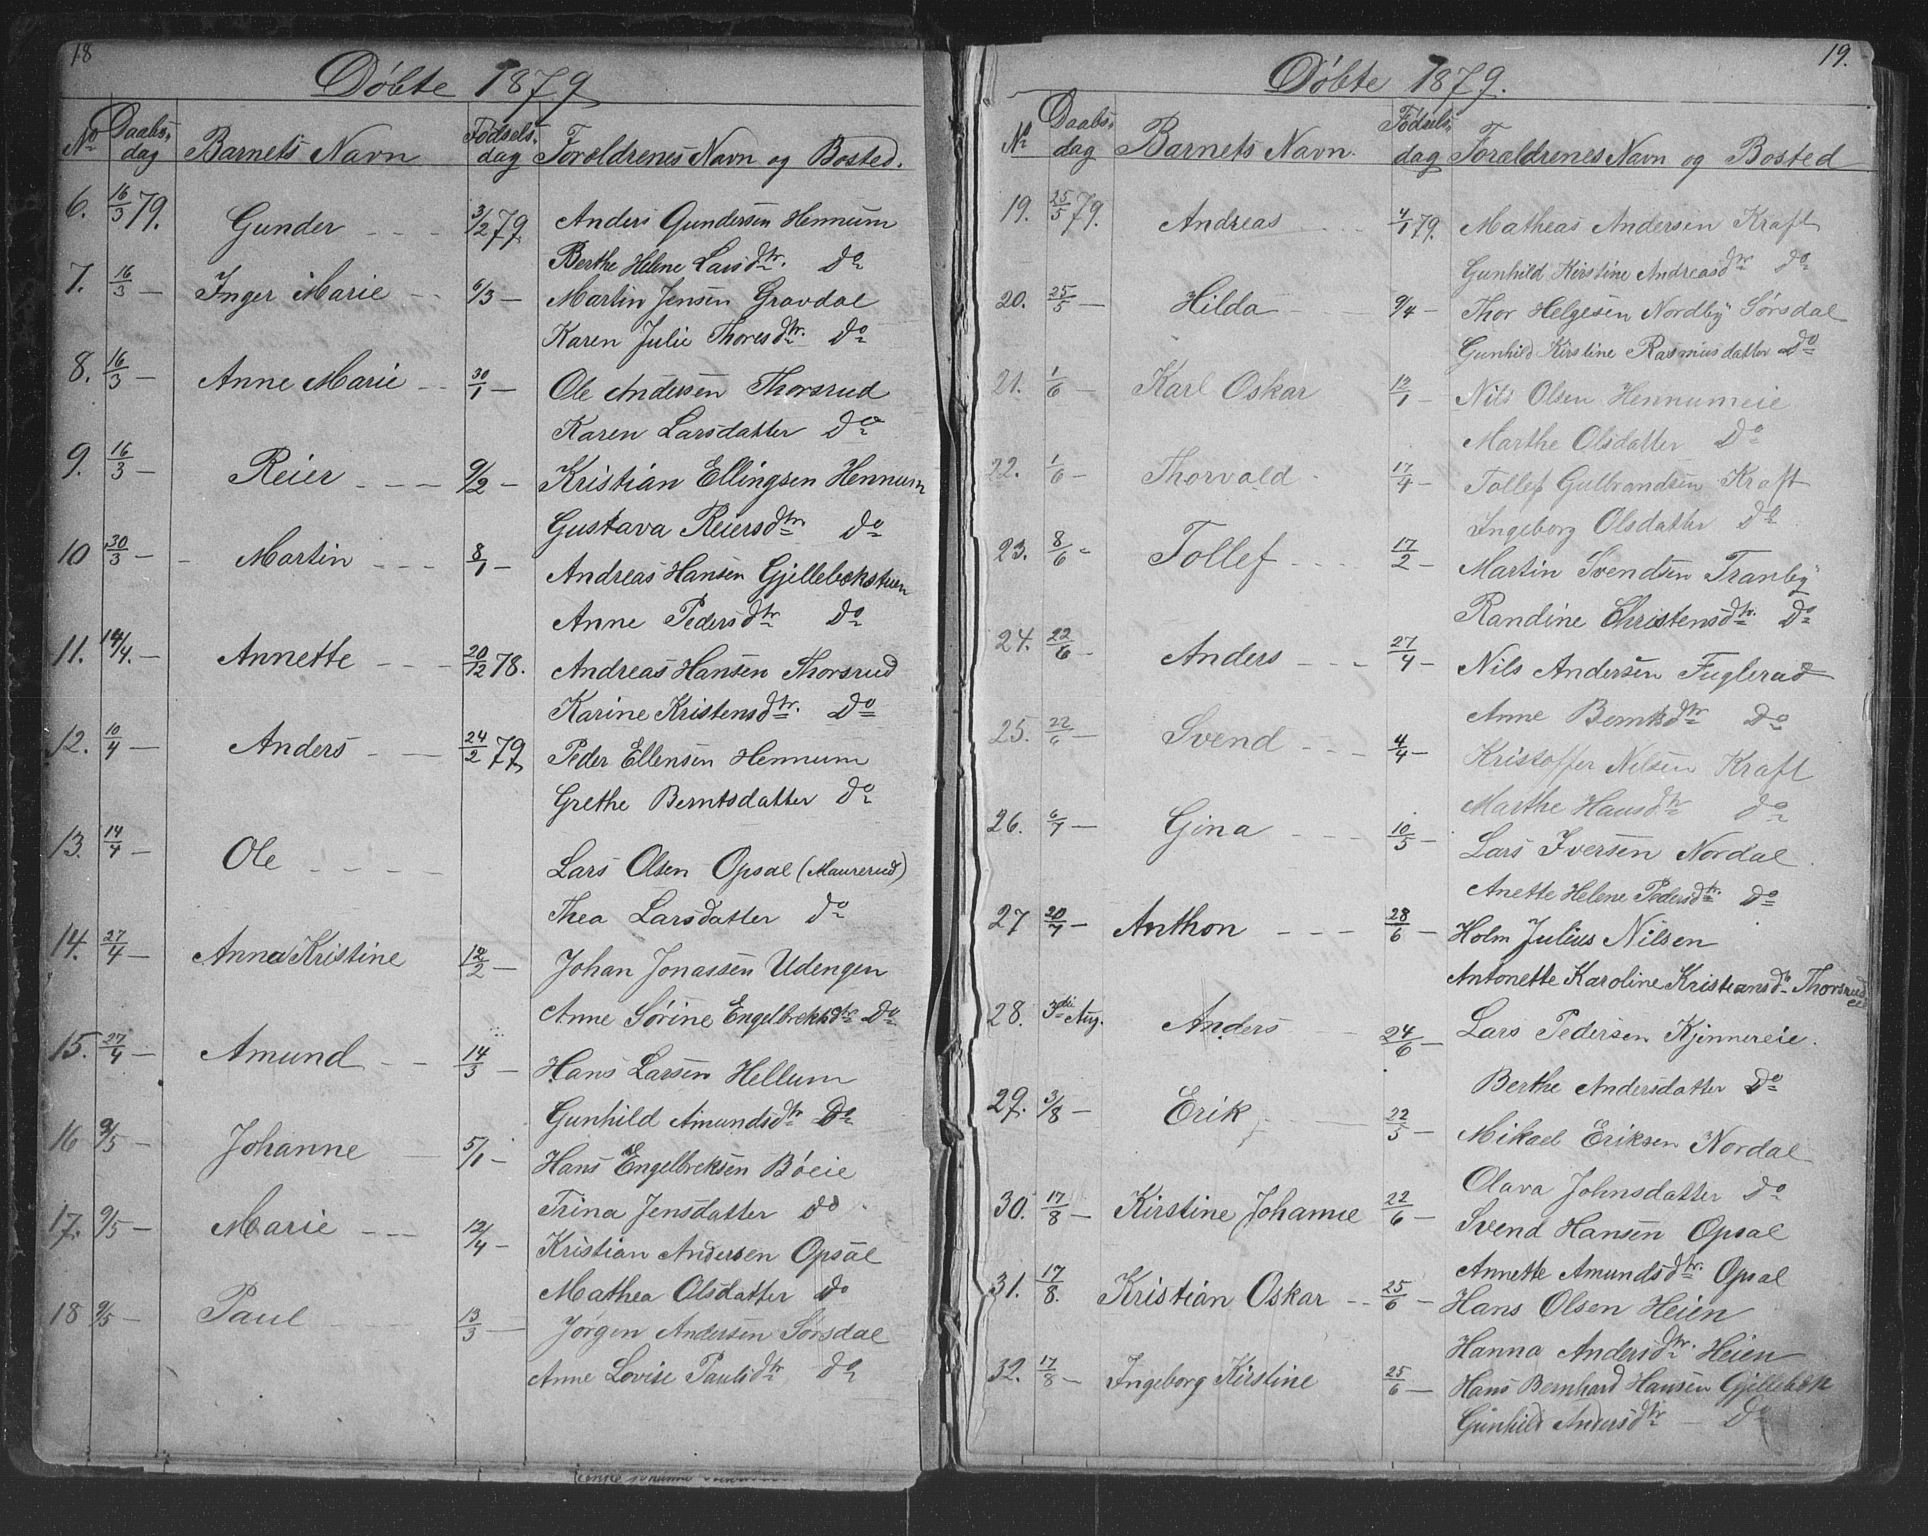 18
Döbte 1879
No Daabsdag Barnets Navn Fødselsdag Forældrenes Navn og Bosted.
6. 16/3 79. Gunder 3/2 79 Anders Gundersen Hennum
Berthe Helene Larsdtr. Do
7. 16/3 — Inger Marie 6/3 — Martin Jensen Gravdal
Karen Julie Thoresdtr. Do
8. 16/3 — Anne Marie 30/1 — Ole Andersen Thorsrud
Karen Larsdatter Do
9. 16/3 — Reier 9/2 — Kristian Ellingsen Hennum
Gustava Reiersdtr Do
10 30/3 — Martin 8/1 — Andreas Hansen Gjellebekstuen
Anne Pedersdtr Do
11. 14/4. — Annette 20/12 78. Andreas Hansen Thorsrud
Karine Kristensdtr. Do
12. 10/4 — Anders 24/2 79 Peder Ellensen Hennum
Grethe Berntsdatter Do
13. 14/4 — Ole Lars Olsen Opsal (Maurerud)
Thea Larsdatter Do
14. 27/4 — Anna Kristine 12/2 — Johan Jonassen Udengen
Anne Sørine Engelbrektsdtr Do
15. 27/4 — Amund 14/3 — Hans Larsen Hellum
Gunhild Amundsdtr Do
16 9/5 — Johanne 5/1 — Hans Engelbreksen Böeie
Trina Jensdatter do
17. 9/5 — Marie 12/4 — Kristian Andersen Opsal
Mathea Olsdatter Do
18 9/5 — Paul 13/3 — Jørgen Andersen Sørsdal
Anne Lovise Paulsdtr do
19.
Döbte 1879.
No Daabsdag Barnets Navn. Fødselsdag Forældrenes Navn og Bosted
19. 25/5 79. Andreas 4/1 79. Matheas Andersen Kraft
Gunhild Kirstine Andreasdtr Do
20. 25/5 — Hilda 9/4 — Thor Helgesen Nordby Sørsdal
Gunhild Kirstine Rasmusdatter Do
21. 1/6 — Karl Oskar 12/1 — Nils Olsen Hennumeie
Marthe Olsdatter Do
22. 1/6 — Thorvald 17/4 — Tollef Gulbrandsen Kraft
Ingeborg Olsdatter Do
23. 8/6 — Tollef 17/2 — Martin Svendsen Tranby
Randine Christensdtr. Do
24. 22/6 — Anders 27/4 — Nils Andersen Fuglerud
Anne Berntsdtr Do
25. 22/6 — Svend 4/4 — Kristoffer Nilsen Kraft
Marthe Hansdtr do
26. 6/7 — Gina 10/5 — Lars Iversen Nordal
Anette Helene Pedersdtr. Do
27 20/7 — Anthon 28/6 — Holm Julius Nilsen
Antonette Karoline Kristiansdtr Thorsrudeie
28. 3die Aug. Anders 24/6 — Lars Pedersen Kjinnereie.
Berthe Andersdatter Do
29. 3/8 — Erik 22/5 — Mikael Eriksen Nordal
Olava Johnsdatter Do
30. 17/8 — Kirstine Johanne 22/6 — Svend Hansen Opsal
Annette Amundsdtr. Opsal
31. 17/8. Kristian Oskar 25/6 — Hans Olsen Heien
Hanna Andersdtr. Heien
32. 17/8 — Ingeborg Kirstine 25/6 — Hans Bernhard Hansen Gjellebek
Gunhild Andersdtr — Do